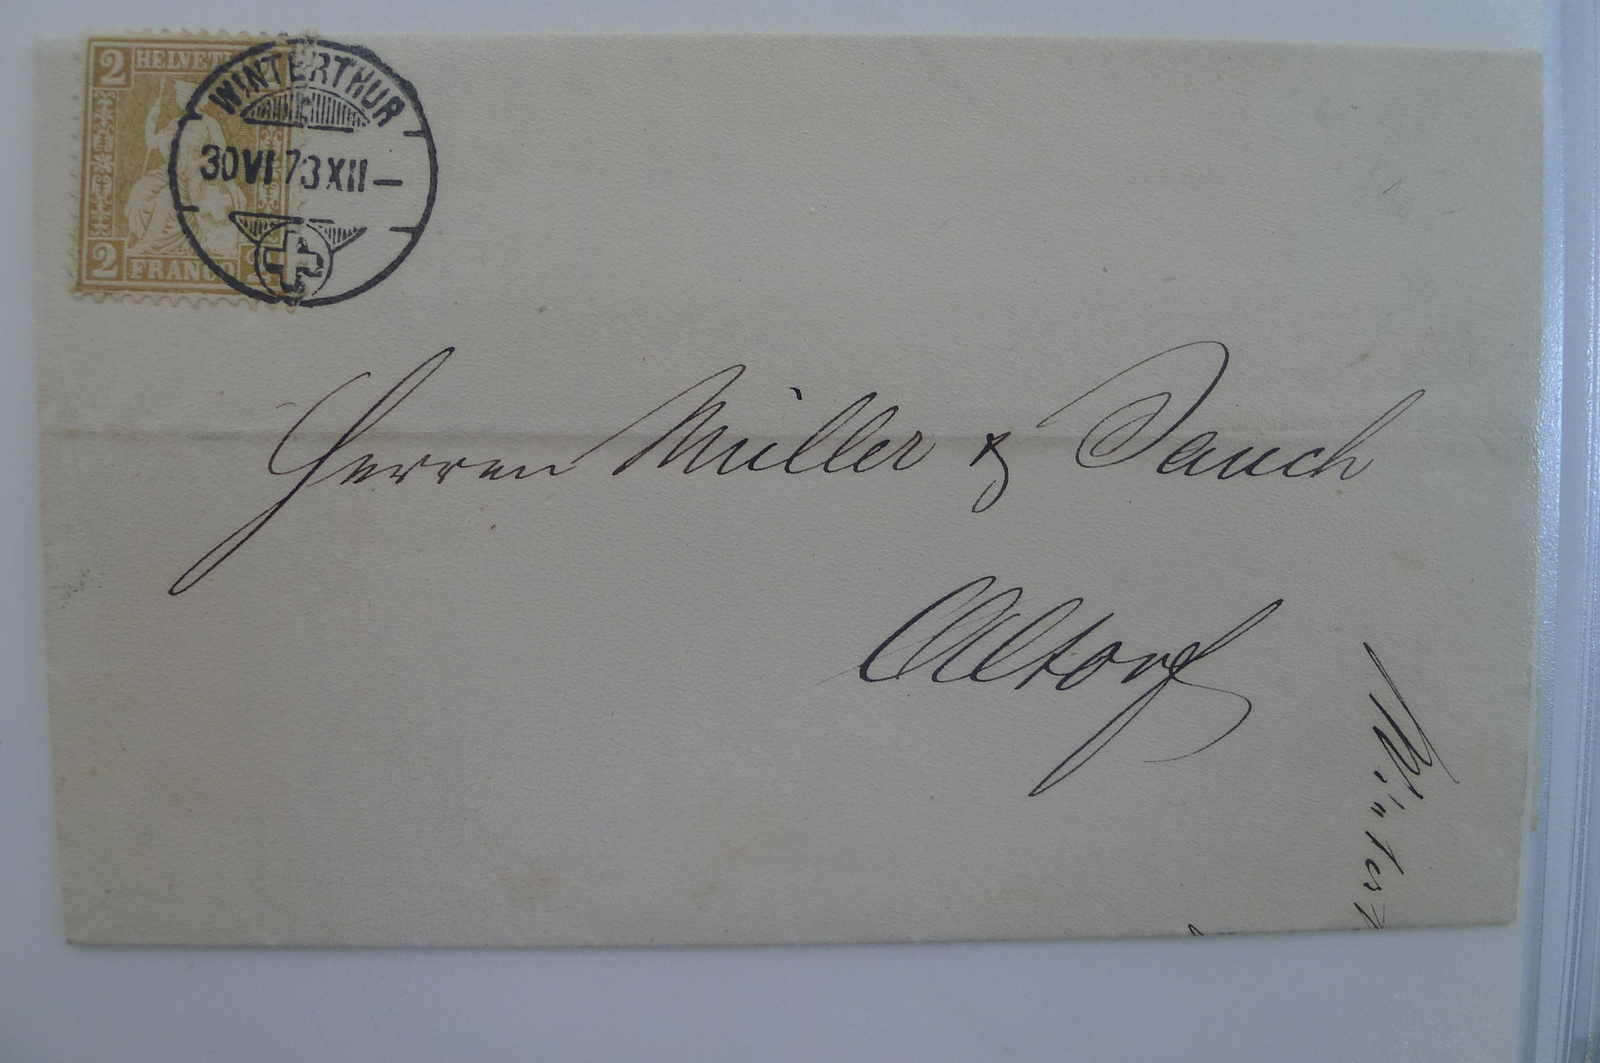 2 HELVETI
WINTERTHUR
30 VI 73 XII –
2 FRANCO 2
Herren Müller & Jauch
Altorf
Wintert